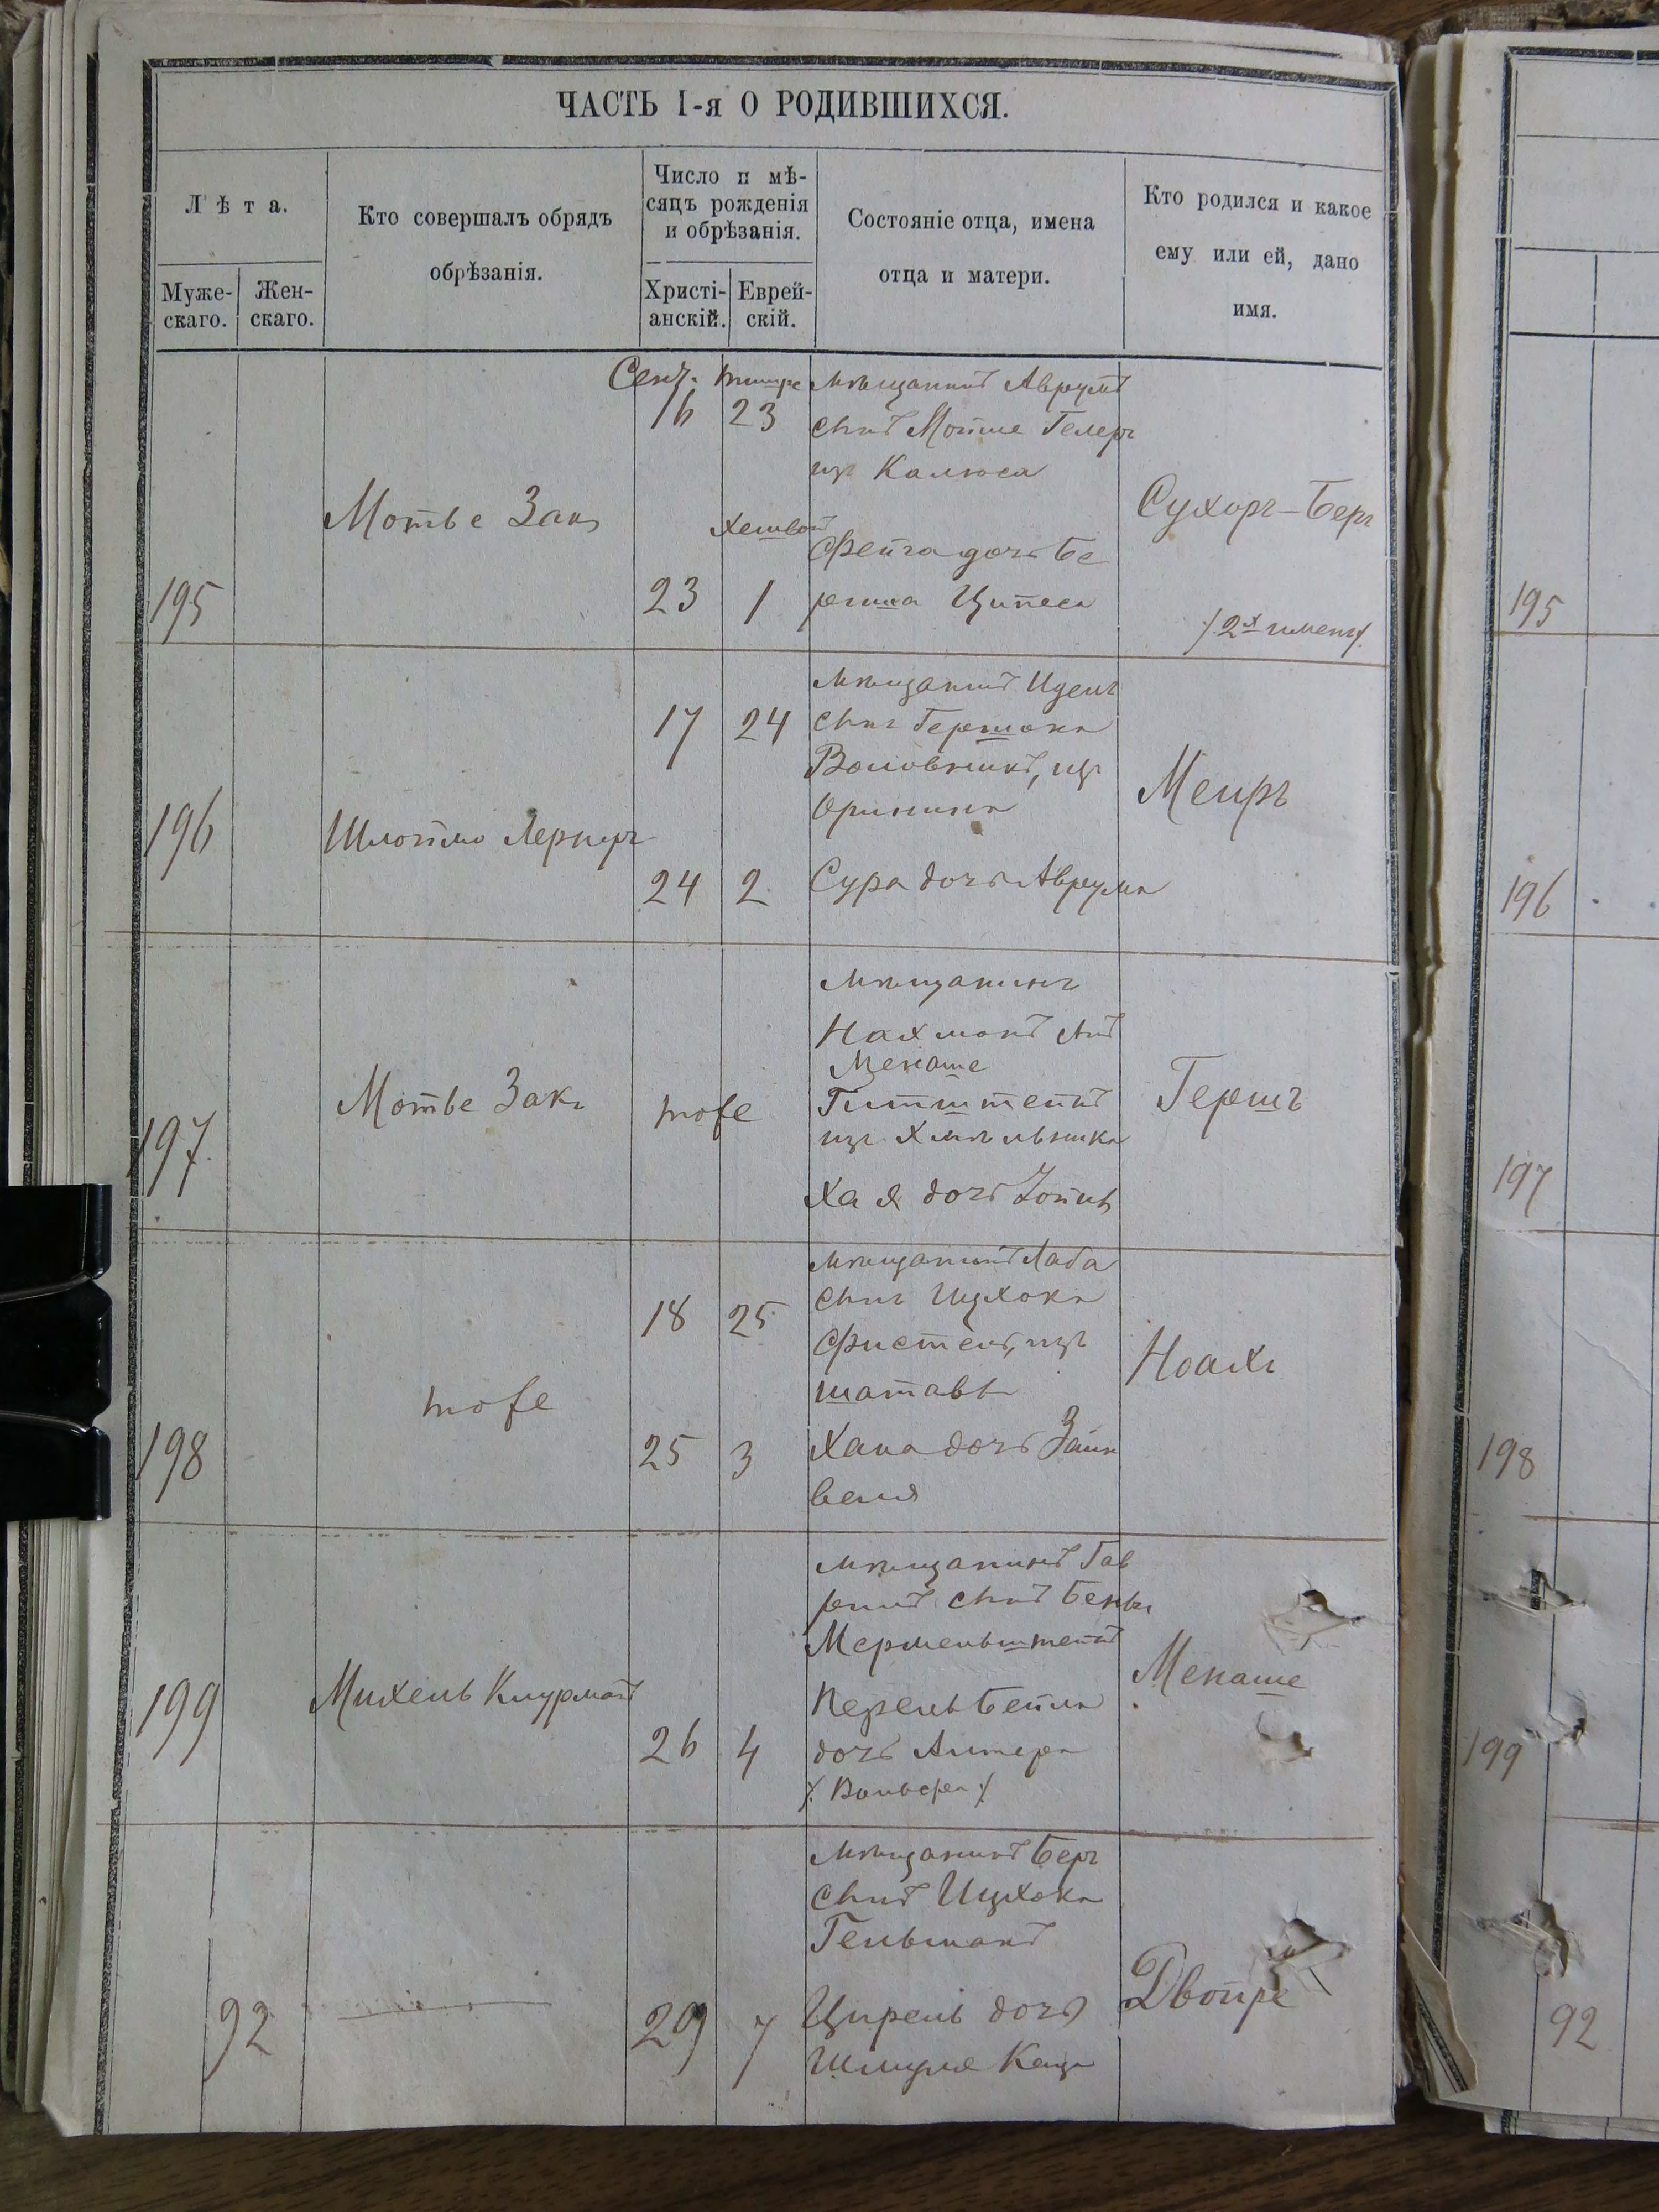 ЧАСТЬ I-я О РОДИВШИХСЯ.
Лѣта.
Муже-
скаго.
Жен-
скаго.
Кто совершалъ обрядъ
обрѣзанія.
Число и мѣ-
сяцъ рожденія
и обрѣзанія.
Христі-
анскій.
Еврей-
скій.
Состояніе отца, имена
отца и матери.
Кто родился и какое
ему или ей, дано
имя.
195
Мотье Закъ
Сент. тишре
16 23
хешвон
23 1
мѣщанинъ Аврумъ
сынъ Мошие Гелеръ
изъ Калюса
Фейга дочь Бе
риша Ципеса
Сухоръ-Беръ
/2х имени/.
195
196
Шлоймо Лернеръ
17 24
24 2
мѣщанинъ Иделъ
сынъ Гершока
Воловникъ, изъ
Оринина
Сура дочь Аврума
Меиръ
196
197
Мотье Закъ
тоже
мѣщанинъ
Нахманъ сынъ
Менаше
Гитштейнъ
изъ Хмѣльника
Хая дочь
Гершъ
197
198
тоже
18 25
25 3
мѣщанинъ Лаба
сынъ Ицхока
Фистель, изъ
шатавы
Хана дочь Зайн
веля
Ноахъ
198
199
Михель Клурманъ
26 4
мѣщанинъ Гав
рилъ сынъ Беньи
Мермельштейнъ
Перель Бейла
дочь Алтера
/. Вольфа ./
Менаше
199
92
29 7
мѣщанинъ Беръ
сынъ Ицхока
Гельманъ
Цирель дочь
Шмуля Каца
Двойре
92